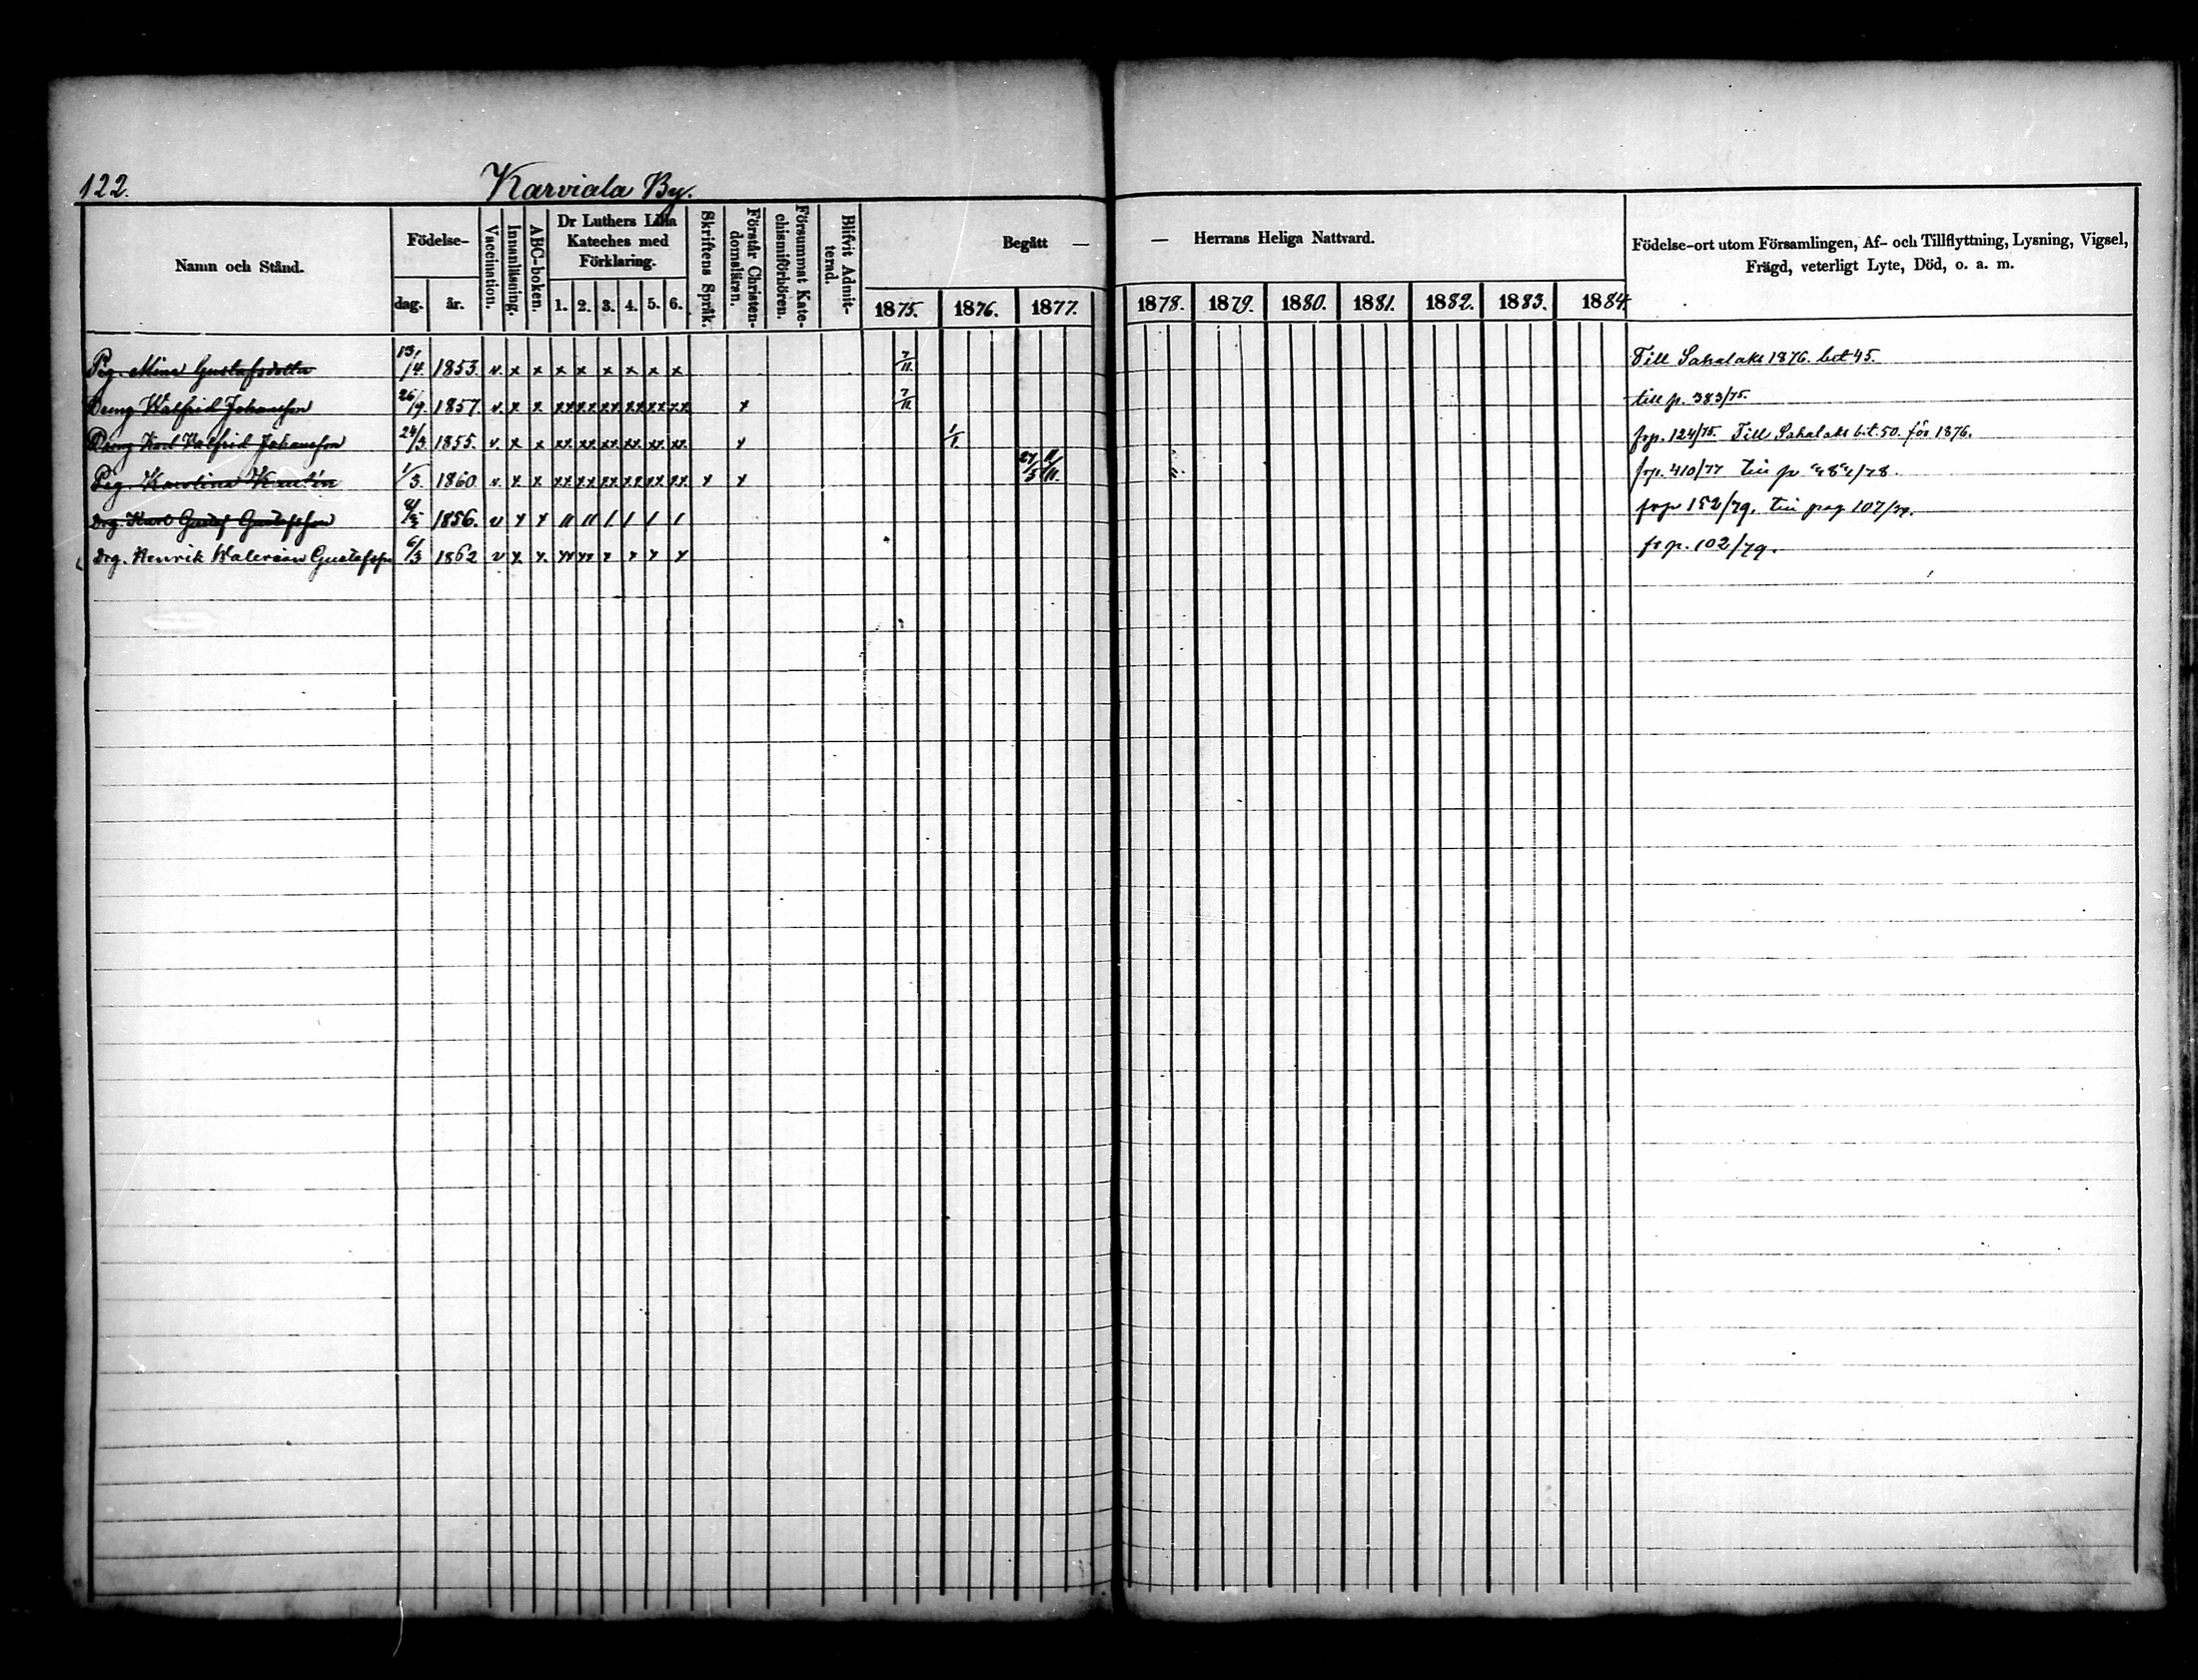 122. Karviala By.
Namn och Stånd. Födelse- dag. år. Vaccination. Innanläsning. ABC-boken. Dr Luthers Lilla Kateches med Förklaring. 1. 2. 3. 4. 5. 6. Skriftens Språk. Förstår Christendomsläran. Försummat Katechismiförhören. Blifvit Admitterad. Begått — — Herrans Heliga Nattvard. 1875. 1876. 1877. 1878. 1879. 1880. 1881. 1882. 1883. 1884. Födelse-ort utom Församlingen, Af- och Tillflyttning, Lysning, Vigsel, Frägd, veterligt Lyte, Död, o. a. m.
Pig. Mina Gustafsdotter 13/4. 1853. v. x x x x x x x x 7/11. Till Sahalaks 1876. bet 45.
Dreng Walfrid Johansson 26/9. 1857. v. x x xx xx xx xx xx xx x 7/11. till p. 383/75.
Dreng Karl Walfrid Johansson 24/3. 1855. v. x x xx xx xx xx xx xx x 1/1. frp. 124/75. Till Sahalaks bit. 50. för 1876.
Pig. Karolina 1/3. 1860 v. x x xx xx xx xx xx xx x x 27/5 11/11. frp. 410/77
Drg. Karl Gustaf Gustafsson 1856. v x x 11 11 1 1 1 1 frp 152/79.
Drg. Henrik Walerian Gustafsson 6/3 1862 v x x. xx xx x x x x fr p. 102/79.